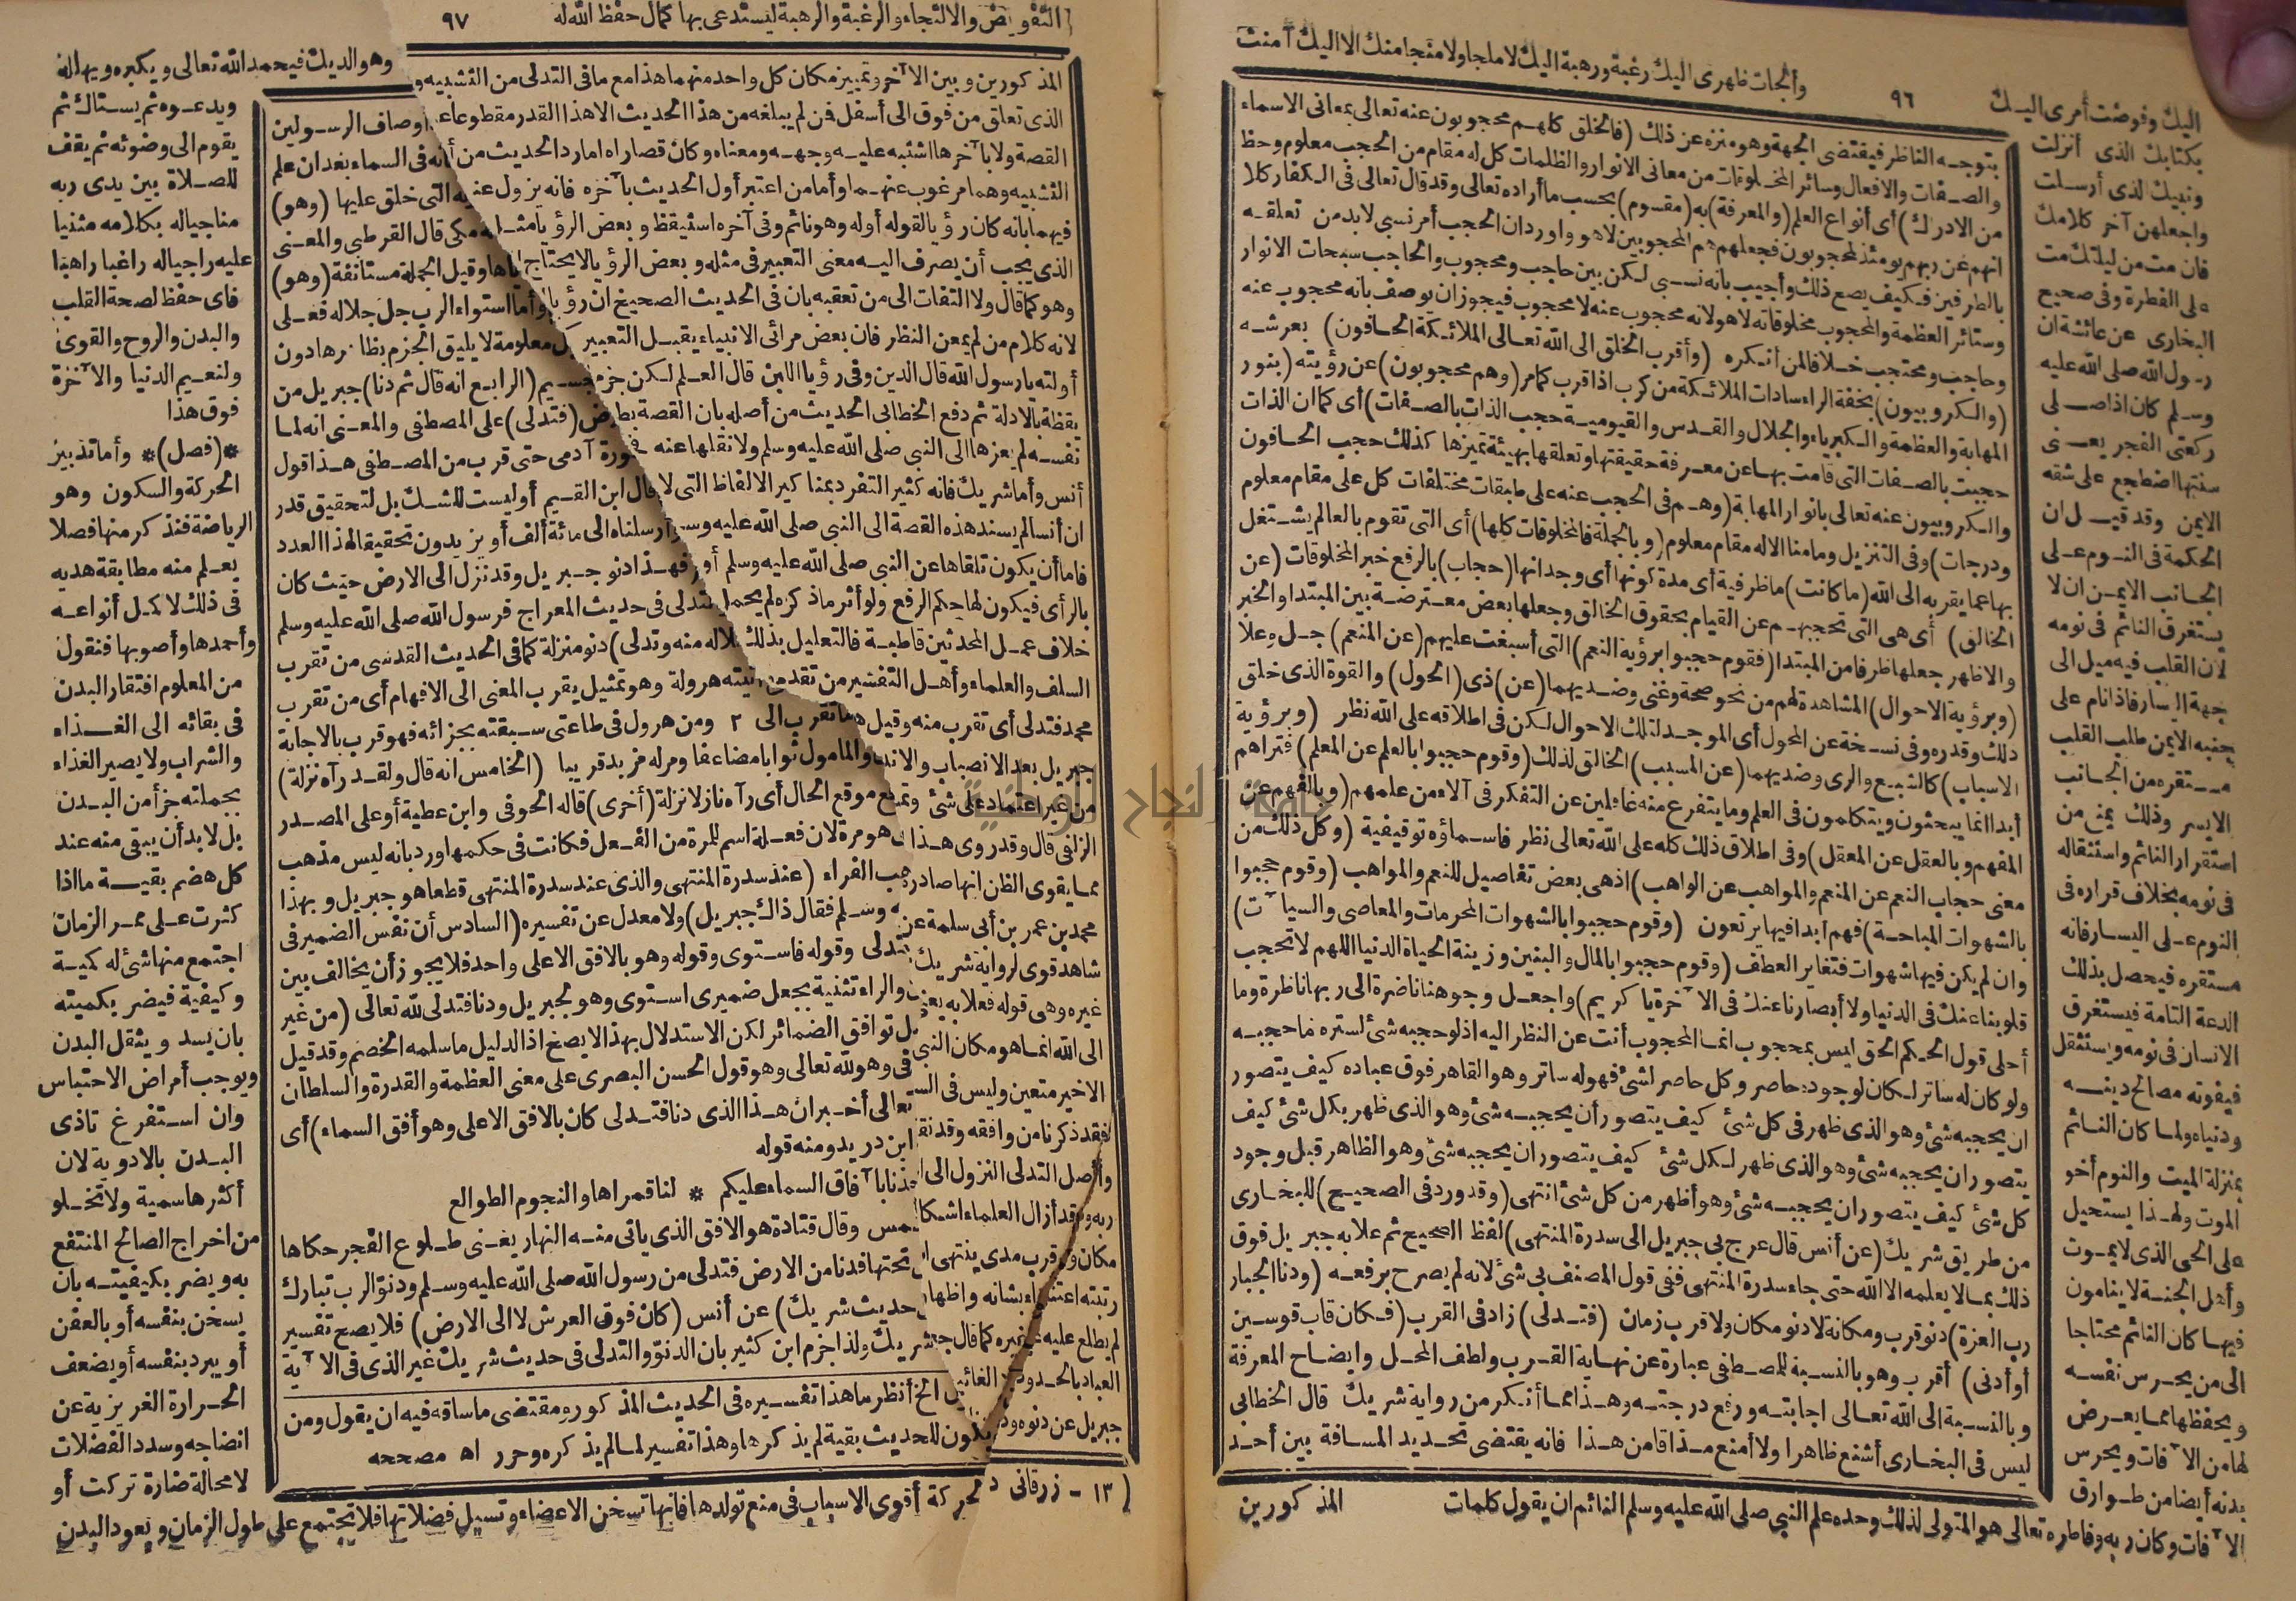 وألجأت ظهرى اليك رغبة ورهبة اليك لاملجا ولا منجا منك الا اليك آمنت
٩٦
اليك وفوضت أمرى اليك
بكتابك الذى أنزلت
ونبيك الذى أرسلت
واجعلهن آخر كلامك
فان مت من ليلتك مت
على الفطرة وفى صحيح
البخارى عن عائشة ان
رسول الله صلى الله عليه
وسلم كان اذا صلى
ركعتى الفجر يعنى
سنتها اضطجع على شقه
الايمن وقد قيل ان
الحكمة فى النوم على
الجانب الايمن ان لا
يستغرق النائم فى نومه
لان القلب فيه ميل الى
جهة اليسار فاذا نام على
جنبه الايمن طلب القلب
مستقره من الجانب
الايسر وذلك يمنع من
استقرار النائم واستثقاله
فى نومه بخلاف قراره فى
النوم على اليسار فانه
مستقره فيحصل بذلك
الدعة التامة فيستغرق
الانسان فى نومه ويستثقل
فيفوته مصالح دينه
ودنياه ولما كان النائم
بمنزلة الميت والنوم أخو
الموت ولهذا يستحيل
على الحى الذى لا يموت
وأهل الجنة لا ينامون
فيها كان النائم محتاجا
الى من يحرس نفسه
ويحفظها مما يعرض
لها من الآفات ويحرس
بدنه أيضا من طوارق
يتوجه الناظر فيقتضى الجهة وهو منزه عن ذلك (فالخلق كلهم محجوبون عنه تعالى بمعانى الاسماء
والصفات والافعال وسائر المخلوقات من معانى الانوار والظلمات كل له مقام من الحجب معلوم وحظ
من الادراك) أى أنواع العلم (والمعرفة) به (مقسوم) بحسب ما أراده تعالى وقد قال تعالى فى الكفار كلا
انهم عن ربهم يومئذ لمحجوبون فجعلهم هم المحجوبين لا هو واوردان الحجب أمر نسبى لابد من تعلقه
بالطرفين فكيف يصح ذلك وأجيب بانه نسبى لكن بين حاجب ومحجوب والحاجب سبحات الانوار
وستائر العظمة والمحجوب مخلوقاته لا هو لانه محجوب عنه لا محجوب فيجوز ان يوصف بانه محجوب عنه
وحاجب ومحتجب خلافا لمن أنكره (وأقرب الخلق الى الله تعالى الملائكة الحافون) بعرشه
(والكروبيون) بخفة الراء سادات الملائكة من كرب اذا قرب كما مر (وهم محجوبون) عن رؤيته (بنور
المهابة والعظمة والكبرياء والجلال والقدس والقيومية حجب الذات بالصفات) أى كما ان الذات
حجبت بالصفات التى قامت بها عن معرفة حقيقتها وتعلقها بهيئة تميزها كذلك حجب الحافون
والكروبيون عنه تعالى بانوار المهابة (وهم فى الحجب عنه على طبقات مختلفات كل على مقام معلوم
ودرجات) وفى التنزيل وما منا الا له مقام معلوم (وبالجملة فالمخلوقات كلها) أى التى تقوم بالعالم يشتغل
بها عما يقربه الى الله (ما كانت) ما ظرفية أى مدة كونها أى وجدانها (حجاب) بالرفع خبر المخلوقات (عن
الخالق) أى هى التى تحجبهم عن القيام بحقوق الخالق وجعلها بعض معترضة بين المبتدا والخبر
والاظهر جعلها ظرفا من المبتدا (فقوم حجبوا برؤية النعم) التى أسبغت عليهم (عن المنعم) جل وعلا
(وبرؤية الاحوال) المشاهدة لهم من نحو صحة وغنى وضديهما (عن) ذى (الحول) والقوة الذى خلق
ذلك وقدره وفى نسخة عن المحول أى الموجد لتلك الاحوال لكن فى اطلاقه على الله نظر (وبرؤية
الاسباب) كالشبع والرى وضديهما (عن المسبب) الخالق لذلك (وقوم حجبوا بالعلم عن المعلم) فتراهم
أبدا انما يبحثون ويتكلمون فى العلم وما يتفرع منه غافلين عن التفكر فى آلاء من علمهم (وبالفهم عن
المفهم وبالعقل عن المعقل) وفى اطلاق ذلك كله على الله تعالى نظر فاسماؤه توقيفية (وكل ذلك من
معنى حجاب النعم عن المنعم والمواهب عن الواهب) اذ هى بعض تفاصيل للنعم والمواهب (وقوم حجبوا
بالشهوات المباحة) فهم أبدا فيها يرتعون (وقوم حجبوا بالشهوات المحرمات والمعاصى والسيآت)
وان لم يكن فيها شهوات فتغاير العطف (وقوم حجبوا بالمال والبنين وزينة الحياة الدنيا اللهم لا تحجب
قلوبنا عنك فى الدنيا ولا أبصارنا عنك فى الآخرة يا كريم) واجعل وجوهنا ناضرة الى ربها ناظرة وما
أحلى قول الحكم الحق ليس بمحجوب انما المحجوب أنت عن النظر اليه اذ لو حجبه شئ لستره ما حجبه
ولو كان له ساتر لكان لوجوده حاصر وكل حاصر لشئ فهو له ساتر وهو القاهر فوق عباده كيف يتصور
ان يحجبه شئ وهو الذى ظهر فى كل شئ كيف يتصور أن يحجبه شئ وهو الذى ظهر بكل شئ كيف
يتصور ان يحجبه شئ وهو الذى ظهر لكل شئ كيف يتصور ان يحجبه شئ وهو الظاهر قبل وجود
كل شئ كيف يتصور ان يحجبه شئ وهو أظهر من كل شئ انتهى (وقد ورد فى الصحيح) للبخارى
من طريق شريك (عن أنس قال عرج بى جبريل الى سدرة المنتهى) لفظ الصحيح ثم علا به جبريل فوق
ذلك بما لا يعلمه الا الله حتى جاء سدرة المنتهى ففى قول المصنف بى شئ لانه لم يصرح برفعه (ودنا الجبار
رب العزة) دنو قرب ومكانة لا دنو مكان ولا قرب زمان (فتدلى) زاد فى القرب (فكان قاب قوسين
أو أدنى) أقرب وهو بالنسبة للمصطفى عبارة عن نهاية القرب ولطف المحل وايضاح المعرفة
وبالنسبة الى الله تعالى اجابته ورفع درجته وهذا مما أنكر من رواية شريك قال الخطابى
ليس فى البخارى أشنع ظاهرا ولا أمنع مذاقا من هذا فانه يقتضى تحديد المسافة بين أحد
المذكورين
الآفات وكان ربه وفاطره تعالى هو المتولى لذلك وحده علم النبى صلى الله عليه وسلم النائم ان يقول كلمات
التفويض والالتجاء والرغبة والرهبة ليستدعى بها كمال حفظ الله له
٩٧
المذكورين وبين الآخر وتمييز مكان كل واحد منهما هذا مع ما فى التدلى من التشبيه و
الذى تعلق من فوق الى أسفل فن لم يبلغه من هذا الحديث الا هذا القدر مقطوعا عن
القصة ولا بآخرها اشتبه عليه وجهه ومعناه وكان قصاراه اما رد الحديث من أ
التشبيه وهما مرغوب عنهما وأما من اعتبر أول الحديث بآخره فانه يزول عنه
فيهما بانه كان رؤيا لقوله أوله وهو نائم وفى آخره استيقظ وبعض الرؤيا مثل
الذى يجب أن يصرف اليه معنى التعبير فى مثله وبعض الرؤيا لا يحتاج
وهو كما قال ولا التفات الى من تعقبه بان فى الحديث الصحيح ان رؤيا
لانه كلام من لم يمعن النظر فان بعض مرائى الانبياء يقبل التعبير ك
أولته يا رسول الله قال الدين وفى رؤيا اللبن قال العلم لكن جزم
يقظة بالادلة ثم دفع الخطابى الحديث من أصله بان القصة بطو
نفسه لم يعزها الى النبى صلى الله عليه وسلم ولا نقلها عنه
أنس وأما شريك فانه كثير التفرد بمناكير الالفاظ التى لا
ان أنسا لم يسند هذه القصة الى النبى صلى الله عليه وسلم
فاما أن يكون تلقاها عن النبى صلى الله عليه وسلم أو
بالرأى فيكون لها حكم الرفع ولو أثر ما ذكره لم يحمل
خلاف عمل المحدثين قاطبة فالتعليل بذلك
السلف والعلماء وأهل التفسير من تقدم
محمد فتدلى أى تقرب منه وقيل
جبريل بعد الانصباب والان
من غير اعتماد على شئ وتم
الزلنى قال وقد روى هذا
مما يقوى الظن انها صادر
محمد بن عمر بن أبى سلمة عن
شاهد قوى لرواية شريك
غيره وهى قوله فعلا به يعنى
الى الله انما هو مكان النبى
الاخير متعين وليس فى الس
فقد ذكرنا من وافقه وقد نق
وأصل التدلى النزول الى ا
ربه وقد أزال العلماء اشكا
مكان و قرب مدى ينتهى
رتبته اعتناء بشانه واظهار
لم يطلع عليه غيره كما قال ج
العباد بالحدود
جبريل عن دنوه ود
أوصاف الرسولين
نه فى السماء بغدان علم
التى خلق عليها (وهو)
مكى قال القرطبى والمعنى
ها وقيل الجملة مستانفة (وهو)
وأما استواء الرب جل جلاله فعلى
معلومة لا يليق الجزم بظاهرها دون
سيم (الرابع انه قال ثم دنا) جبريل من
رض (فتدلى) على المصطفى والمعنى انه لما
ورة آدمى حتى قرب من المصطفى هذا قول
قال ابن القيم أو ليست للشك بل لتحقيق قدر
أرسلناه الى مائة ألف أو يزيدون تحقيقا لهذا العدد
فهذا دنو جبريل وقد نزل الى الارض حيث كان
تدلى فى حديث المعراج فرسول الله صلى الله عليه وسلم
لاله منه وتدلى) دنو منزلة كما فى الحديث القدسى من تقرب
تيته هرولة وهو تمثيل يقرب المعنى الى الافهام أى من تقرب
تقرب الى ٢ ومن هرول فى طاعتى سبقته بجزائه فهو قرب بالاجابة
والمامول ثوابا مضاعفا ومر له مزيد قريبا (الخامس انه قال ولقد رآه نزلة)
ع موقع الحال أى رآه نازلا نزلة (أخرى) قاله الحوفى وابن عطية أو على المصدر
هو مرة لان فعلة اسم للمرة من الفعل فكانت فى حكمها ورد بانه ليس مذهب
هب الفراء (عند سدرة المنتهى والذى عند سدرة المنتهى قطعا هو جبريل وبهذا
وسلم فقال ذاك جبريل) ولا معدل عن تفسيره (السادس أن نفس الضمير فى
تدلى وقوله فاستوى وقوله وهو بالافق الاعلى واحد فلا يجوز أن يخالف بين
والراء تثنية بجعل ضميرى استوى وهو لجبريل ودنا فتدلى لله تعالى (من غير
ل توافق الضمائر لكن الاستدلال بهذا لا يصح اذ الدليل ما سلمه الخصم وقد قيل
فى وهو لله تعالى وهو قول الحسن البصرى على معنى العظمة والقدرة والسلطان
تعالى أخبر ان هذا الذى دنا فتدلى كان بالافق الاعلى وهو أفق السماء) أى
ابن دريد ومنه قوله
خذنا بآفاق السماء عليكم * لنا قمراها والنجوم الطوالع
مس وقال قتادة هو الافق الذى ياتى منه النهار يعنى طلوع الفجر حكاها
تحتها فدنا من الارض فتدلى من رسول الله صلى الله عليه وسلم ودنو الرب تبارك
حديث شريك) عن أنس (كان فوق العرش لا الى الارض) فلا يصح تفسير
شريك ولذا جزم ابن كثير بان الدنو والتدلى فى حديث شريك غير الذى فى الآية
الخ أنظر ما هذا تفسيره فى الحديث المذكور ومقتضى ما ساقه فيه ان يقول ومن
يكون للحديث بقية لم يذكرها وهذا تفسير لما لم يذكره وحرر اه مصححه
وهو الديك فيحمد الله تعالى ويكبره ويهلله
ويدعوه ثم يستاك ثم
يقوم الى وضوئه ثم يقف
للصلاة بين يدى ربه
مناجيا له بكلامه مثنيا
عليه راجيا له راغبا راهبا
فاى حفظ لصحة القلب
والبدن والروح والقوى
ولنعيم الدنيا والآخرة
فوق هذا
*(فصل)* وأما تدبير
الحركة والسكون وهو
الرياضة فنذكر منها فصلا
يعلم منه مطابقة هديه
فى ذلك لاكمل أنواعه
وأحمدها وأصوبها فنقول
من المعلوم افتقار البدن
فى بقائه الى الغذاء
والشراب ولا يصير الغذاء
بجملته جزأ من البدن
بل لابد أن يبقى منه عند
كل هضم بقية ما اذا
كثرت على ممر الزمان
اجتمع منها شئ له كمية
وكيفية فيضر بكميته
بان يسد ويثقل البدن
ويوجب أمراض الاحتباس
وان استفرغ تاذى
البدن بالادوية لان
أكثرها سمية ولا تخلو
من اخراج الصالح المنتفع
به ويضر بكيفيته بان
يسخن بنفسه أو بالعفن
أو يبرد بنفسه أو يضعف
الحرارة الغريزية عن
انضاجه وسدد الفضلات
لا محالة ضارة تركت أو
(١٣ - زرقانى
حركة أقوى الاسباب فى منع تولدها فانها تسخن الاعضاء وتسيل فضلاتها فلا تجتمع على طول الزمان وتعود البدن
جامعة النجاح الوطنية